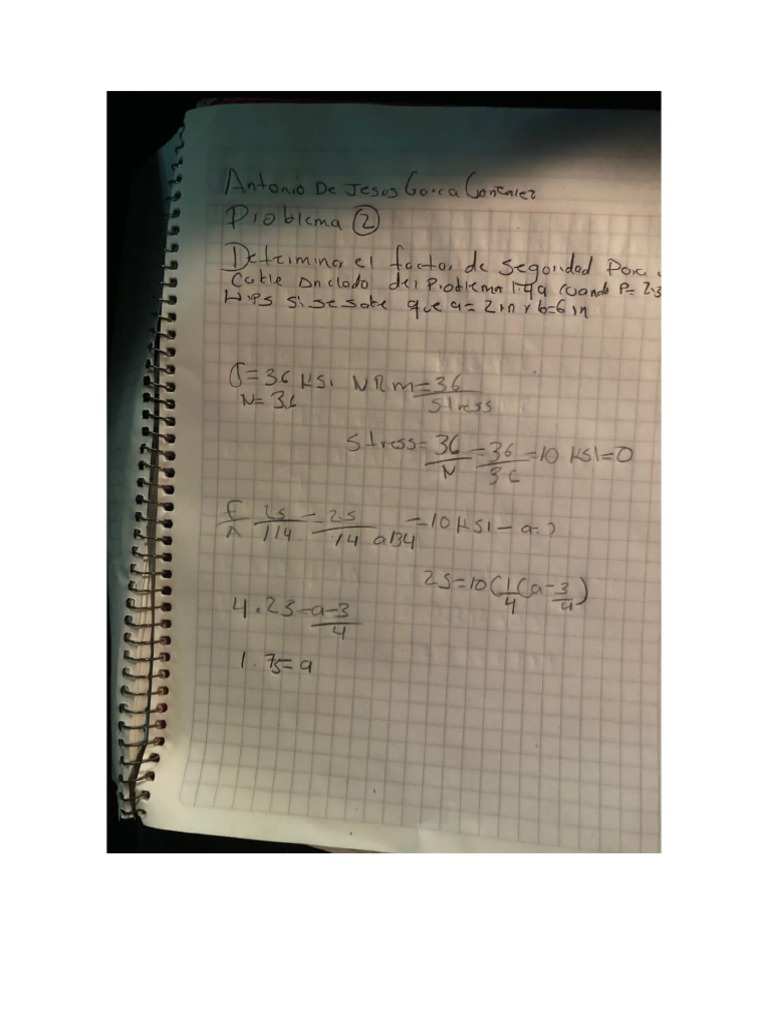 Antonio De Jesus Garcia Gonzalez
Problema 2
Determinar el factor de seguridad Para
Cable Anclado del Problema 1.49a cuando P= 2.3
kips si se sabe que a= 2in y b=6in
σ=36 KSI NRm=36/stress
N=3.6
Stress=36/N=36/36=10 KSI=0
F/A =2.5/ =10KSI-a=?
25=10(1/4(a-3/4)
4.25=a-3/4
1.75=a